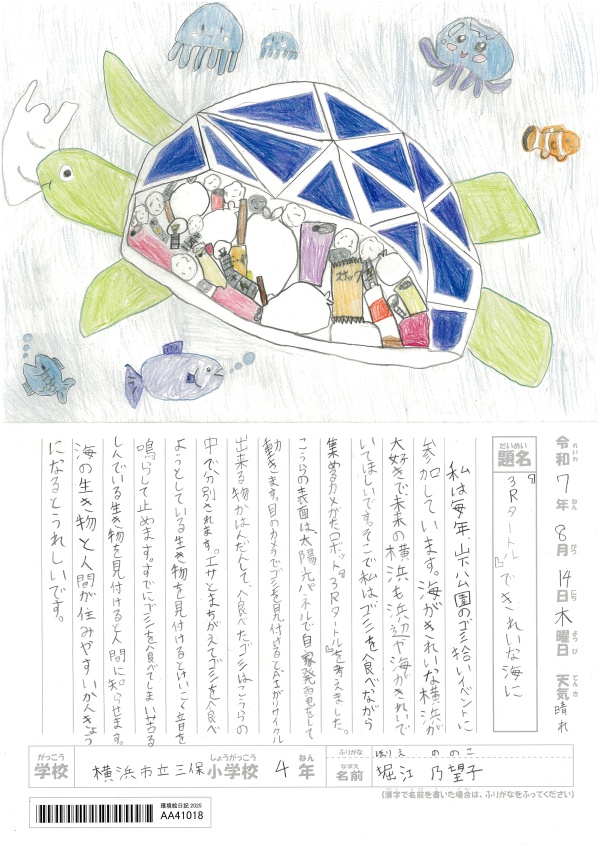 スナック
令和7年8月14日木曜日 天気 晴れ
れいわ ねん がつ にち ようび てんき
だいめい
題名
『3Rタートル』できれいな海に
私は毎年、山下公園のゴミ拾いイベントに
参加しています。海がきれいな横浜が
大好きで、未来の横浜も浜辺や海がきれいで
いてほしいです。そこで私はゴミを食べながら
集めるカメがたロボット『3Rタートル』を考えました。
こうらの表面は太陽光パネルで自家発電をして
動きます。目のカメラでゴミを見付けるとAIがリサイクル
出来る物かはんだんして、食べたゴミはこうらの
中で分別されます。エサとまちがえてゴミを食べ
ようとしている生き物を見付けるとけいこく音を
鳴らして止めます。すでにゴミを食べてしまい苦る
しんでいる生き物を見付けると人間に知らせます。
海の生き物と人間が住みやすいかんきょう
になるとうれしいです。
がっこう しょうがっこう ねん
学校 横浜市立三保小学校 4年
ふりがな ほりえ ののこ
なまえ
名前 堀江 乃望子
(漢字で名前を書いた場合は、ふりがなをふってください)
環境絵日記 2025
AA41018